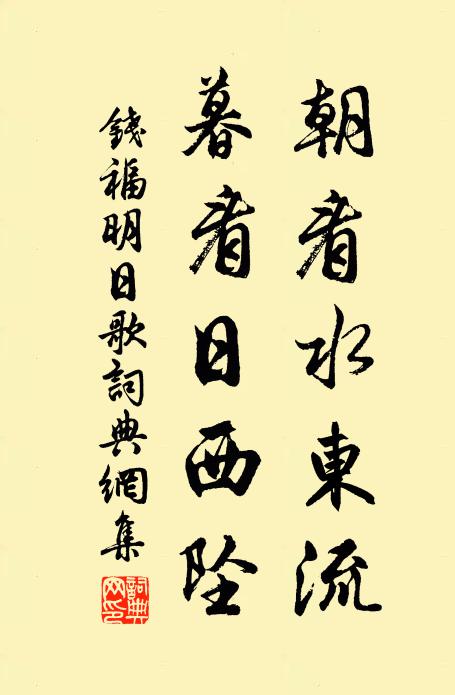 朝看水東流
暮看日西墜
錢福明日歌詞典網集
詞典網印